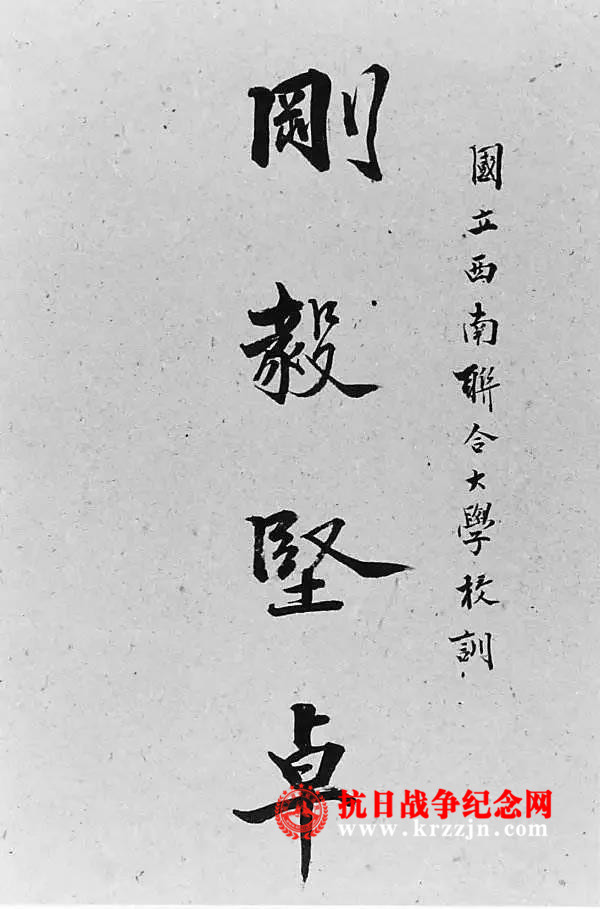 國立西南聯合大學校訓
剛毅堅卓
抗日战争纪念网
www.krzzjn.com